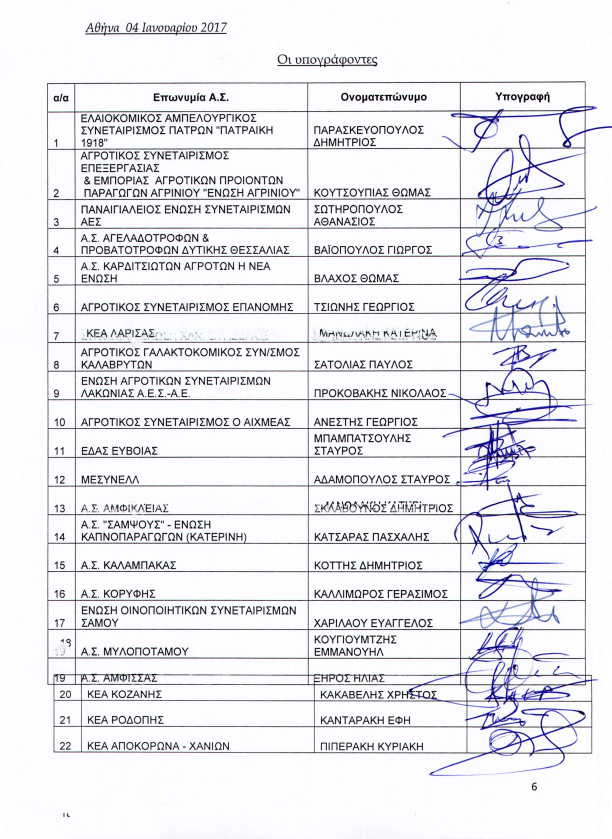 Αθήνα 04 Ιανουαρίου 2017
Οι υπογράφοντες
α/α Επωνυμία Α.Σ. Ονοματεπώνυμο Υπογραφή
ΕΛΑΙΟΚΟΜΙΚΟΣ ΑΜΠΕΛΟΥΡΓΙΚΟΣ
ΣΥΝΕΤΑΙΡΙΣΜΟΣ ΠΑΤΡΩΝ "ΠΑΤΡΑΙΚΗ ΠΑΡΑΣΚΕΥΟΠΟΥΛΟΣ
1 1918" ΔΗΜΗΤΡΙΟΣ
ΑΓΡΟΤΙΚΟΣ ΣΥΝΕΤΑΙΡΙΣΜΟΣ
ΕΠΕΞΕΡΓΑΣΙΑΣ
& ΕΜΠΟΡΙΑΣ ΑΓΡΟΤΙΚΩΝ ΠΡΟΙΟΝΤΩΝ
2 ΠΑΡΑΓΩΓΩΝ ΑΓΡΙΝΙΟΥ "ΕΝΩΣΗ ΑΓΡΙΝΙΟΥ" ΚΟΥΤΣΟΥΠΙΑΣ ΘΩΜΑΣ
ΠΑΝΑΙΓΙΑΛΕΙΟΣ ΕΝΩΣΗ ΣΥΝΕΤΑΙΡΙΣΜΩΝ ΣΩΤΗΡΟΠΟΥΛΟΣ
3 ΑΕΣ ΑΘΑΝΑΣΙΟΣ
Α.Σ. ΑΓΕΛΑΔΟΤΡΟΦΩΝ &
4 ΠΡΟΒΑΤΟΤΡΟΦΩΝ ΔΥΤΙΚΗΣ ΘΕΣΣΑΛΙΑΣ ΒΑΪΟΠΟΥΛΟΣ ΓΙΩΡΓΟΣ
Α.Σ. ΚΑΡΔΙΤΣΙΩΤΩΝ ΑΓΡΟΤΩΝ Η ΝΕΑ
5 ΕΝΩΣΗ ΒΛΑΧΟΣ ΘΩΜΑΣ
6 ΑΓΡΟΤΙΚΟΣ ΣΥΝΕΤΑΙΡΙΣΜΟΣ ΕΠΑΝΟΜΗΣ ΤΣΙΩΝΗΣ ΓΕΩΡΓΙΟΣ
7 ΚΕΑ ΛΑΡΙΣΑΣ ΜΑΝΩΛΑΚΗ ΚΑΤΕΡΙΝΑ
ΑΓΡΟΤΙΚΟΣ ΓΑΛΑΚΤΟΚΟΜΙΚΟΣ ΣΥΝ/ΣΜΟΣ
8 ΚΑΛΑΒΡΥΤΩΝ ΣΑΤΟΛΙΑΣ ΠΑΥΛΟΣ
ΕΝΩΣΗ ΑΓΡΟΤΙΚΩΝ ΣΥΝΕΤΑΙΡΙΣΜΩΝ
9 ΛΑΚΩΝΙΑΣ Α.Ε.Σ.-Α.Ε. ΠΡΟΚΟΒΑΚΗΣ ΝΙΚΟΛΑΟΣ
10 ΑΓΡΟΤΙΚΟΣ ΣΥΝΕΤΑΙΡΙΣΜΟΣ Ο ΑΙΧΜΕΑΣ ΑΝΕΣΤΗΣ ΓΕΩΡΓΙΟΣ
ΜΠΑΜΠΑΤΣΟΥΛΗΣ
11 ΕΔΑΣ ΕΥΒΟΙΑΣ ΣΤΑΥΡΟΣ
12 ΜΕΣΥΝΕΛΛ ΑΔΑΜΟΠΟΥΛΟΣ ΣΤΑΥΡΟΣ
13 Α.Σ. ΑΜΦΙΚΛΕΙΑΣ ΣΚΛΑΒΟΥΝΟΣ ΔΗΜΗΤΡΙΟΣ
Α.Σ. "ΣΑΜΨΟΥΣ" - ΕΝΩΣΗ
14 ΚΑΠΝΟΠΑΡΑΓΩΓΩΝ (ΚΑΤΕΡΙΝΗ) ΚΑΤΣΑΡΑΣ ΠΑΣΧΑΛΗΣ
15 Α.Σ. ΚΑΛΑΜΠΑΚΑΣ ΚΟΤΤΗΣ ΔΗΜΗΤΡΙΟΣ
16 Α.Σ. ΚΟΡΥΦΗΣ ΚΑΛΛΙΜΩΡΟΣ ΓΕΡΑΣΙΜΟΣ
ΕΝΩΣΗ ΟΙΝΟΠΟΙΗΤΙΚΩΝ ΣΥΝΕΤΑΙΡΙΣΜΩΝ
17 ΣΑΜΟΥ ΧΑΡΙΛΑΟΥ ΕΥΑΓΓΕΛΟΣ
18 ΚΟΥΓΙΟΥΜΤΖΗΣ
Α.Σ. ΜΥΛΟΠΟΤΑΜΟΥ ΕΜΜΑΝΟΥΗΛ
19 Α.Σ. ΑΜΦΙΣΣΑΣ ΞΗΡΟΣ ΗΛΙΑΣ
20 ΚΕΑ ΚΟΖΑΝΗΣ ΚΑΚΑΒΕΛΗΣ ΧΡΗΣΤΟΣ
21 ΚΕΑ ΡΟΔΟΠΗΣ ΚΑΝΤΑΡΑΚΗ ΕΦΗ
22 ΚΕΑ ΑΠΟΚΟΡΩΝΑ - ΧΑΝΙΩΝ ΠΙΠΕΡΑΚΗ ΚΥΡΙΑΚΗ
6